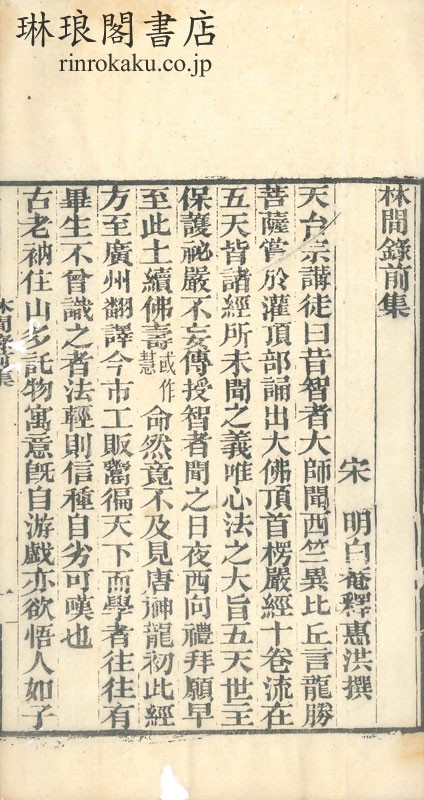 琳琅閣書店
rinrokaku.co.jp
林間錄前集
宋 明白菴釋惠洪撰
天台宗講徒曰昔智者大師聞西竺異比丘言龍勝
菩薩嘗於灌頂部誦出大佛頂首楞嚴經十卷流在
五天皆諸經所未聞之義唯心法之大旨五天世主
保護祕嚴不妄傳授智者聞之日夜西向禮拜願早
至此土續佛壽或作慧命然竟不及見唐神龍初此經
方至廣州翻譯今市工販鬻徧天下而學者往往有
畢生不曾識之者法輕則信種自劣可嘆也
古老衲住山多託物寓意旣自游戲亦欲悟人如子
林間錄前集
一